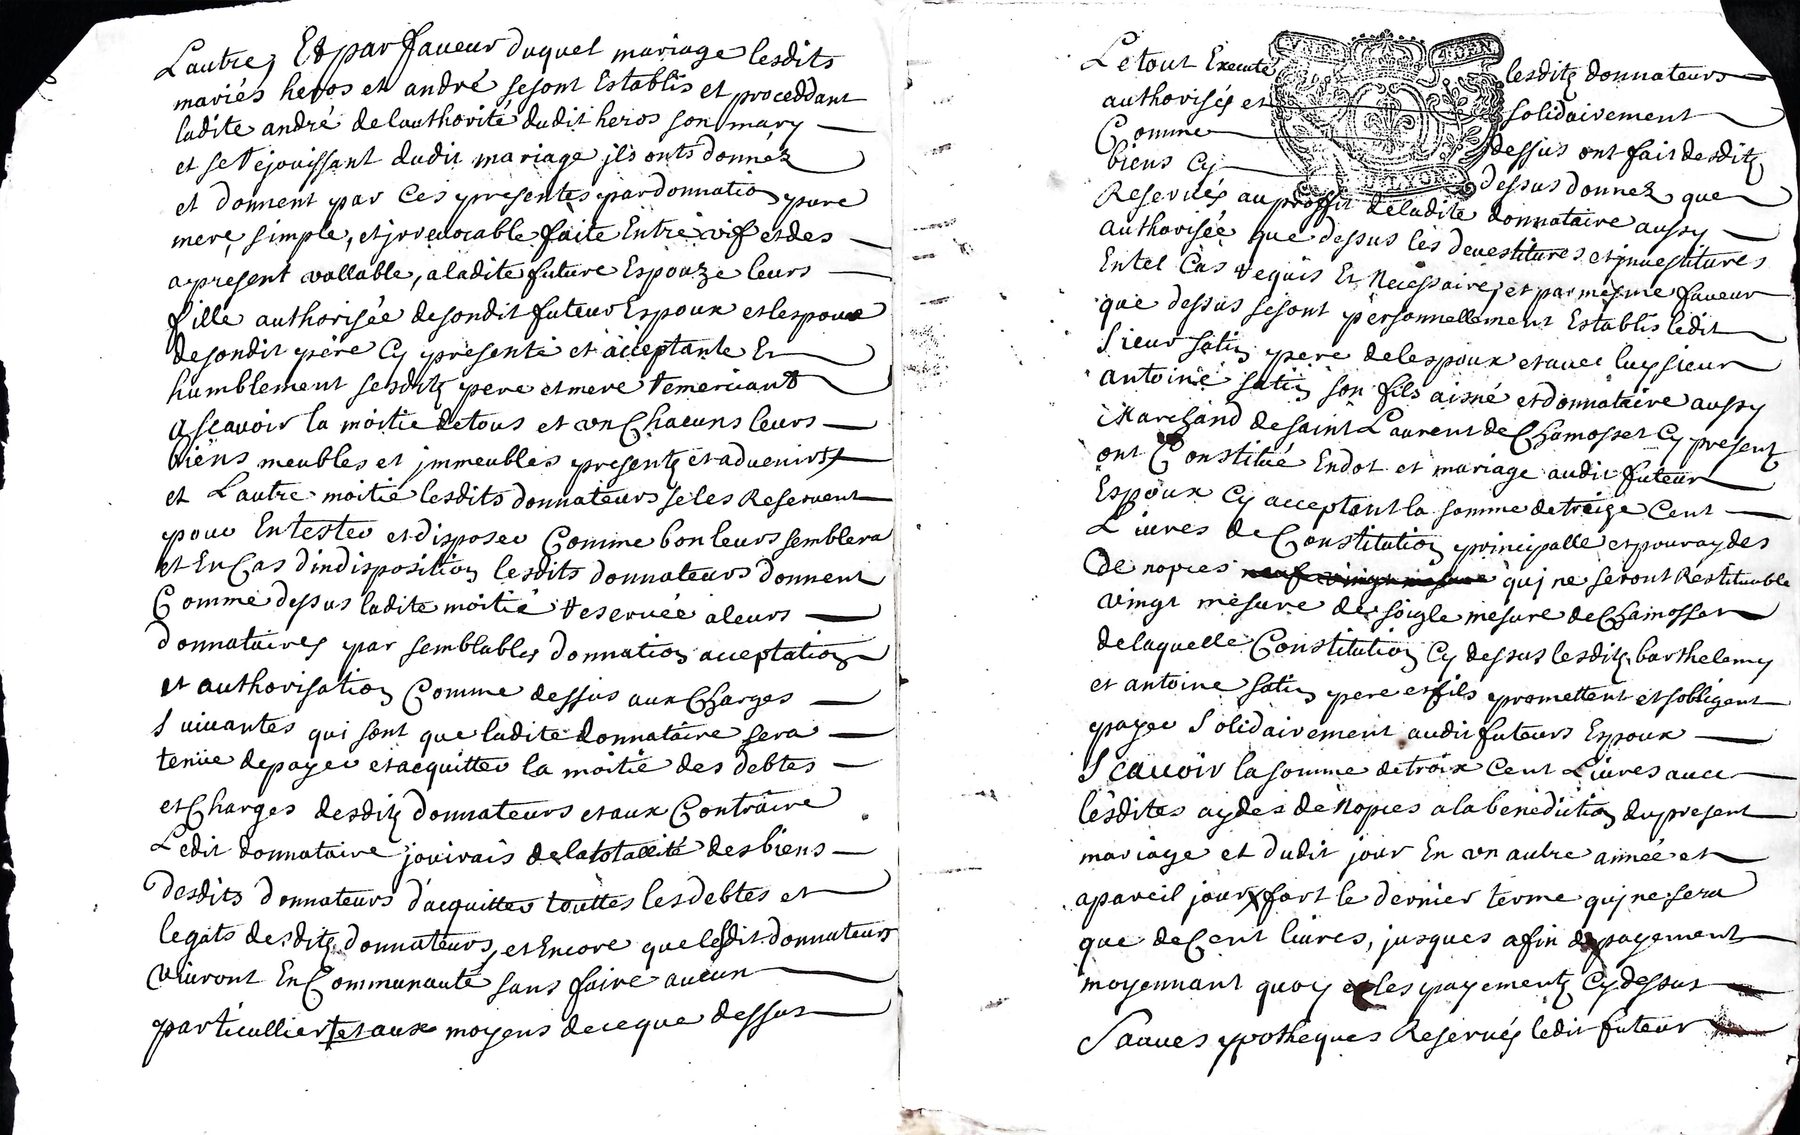 Lautre, Et par faueur duquel mariage lesdits
mariés heros et andré se sont Establis et proceddant
ladite andré de lauthorité dudit heros son mary
et se rejouissant dudit mariage jls onts donnez
et donnent par ces presentes par donnation pure
mere simple, et jrreuocable faite Entre vif et des
apresent vallable, a ladite future Espouze leurs
fille authorisée de sondit futeur Espoux et lespoux
de sondit père Cy presente et acceptante Et
humblement sesditz pere et mere remerciant
a scauoir la moitie de tous et vn Chacuns leurs
biens meubles et jmmeubles presentz et aduenirs
et Lautre moitié lesdits donnateurs se les Reseruent
pour En tester et disposer Comme bon leurs semblera
et En Cas dindisposition lesdits donnateurs donnent
Comme dessus ladite moitié reseruée a leurs
donnataires par semblables donnation acceptation
et authorisation Comme dessus aux Charges
suiuantes qui sont que ladite donnataire sera
tenüe de payer et acquitter la moitié des debtes
et Charges desditz donnateurs et aux Contraire
Ledit donnataire jouirais de la totallité des biens
desdits donnateurs d'acquitter touttes les debtes et
legats desditz donnateurs, et Encore que lesdit donnateurs
viuront En Communauté sans faire aucun
particullier et aux moyens de ce que dessus
Le tout Execute lesditz donnateurs
authorisés et solidairement
Comme dessus ont fait desditz
biens Cy dessus donnez que
Reserués au proffit de ladite donnataire aussy
authorisée que dessus les deuestitures et jnuestitures
En tel Cas requis Et Necessaire, et par mesme faueur
que dessus se sont personnellement Establis ledit
Sieur satin pere de lespoux et auec luy sieur
antoine satin son fils aisné et donnataire aussy
Marchand de saint Laurent de Chamosset Cy present
ont Constitué En dot et mariage audit futeur
Espoux Cy acceptant la somme de treize Cent
Liures de Constitution principalle et pour aydes
de nopces neuf vingt mesure quj ne seront Restituable
vingt mesure de soigle mesure de Chamosset
de laquelle Constitution Cy dessus lesditz barthelemy
et antoine satin pere et fils promettent et sobligent
payer solidairement audit futeurs Espoux
Scauoir la somme de troix Cent Liures auec
lesdites aydes de Nopces a la benediction du present
mariage et dudit jour En vn autre année et
a pareil jour fort le dernier terme quj ne sera
que de Cent liures, jusques a fin de payement
moyennant quoy et les payementz Cy dessus
Sauues ypotheques Reserués ledit futeur
LYON